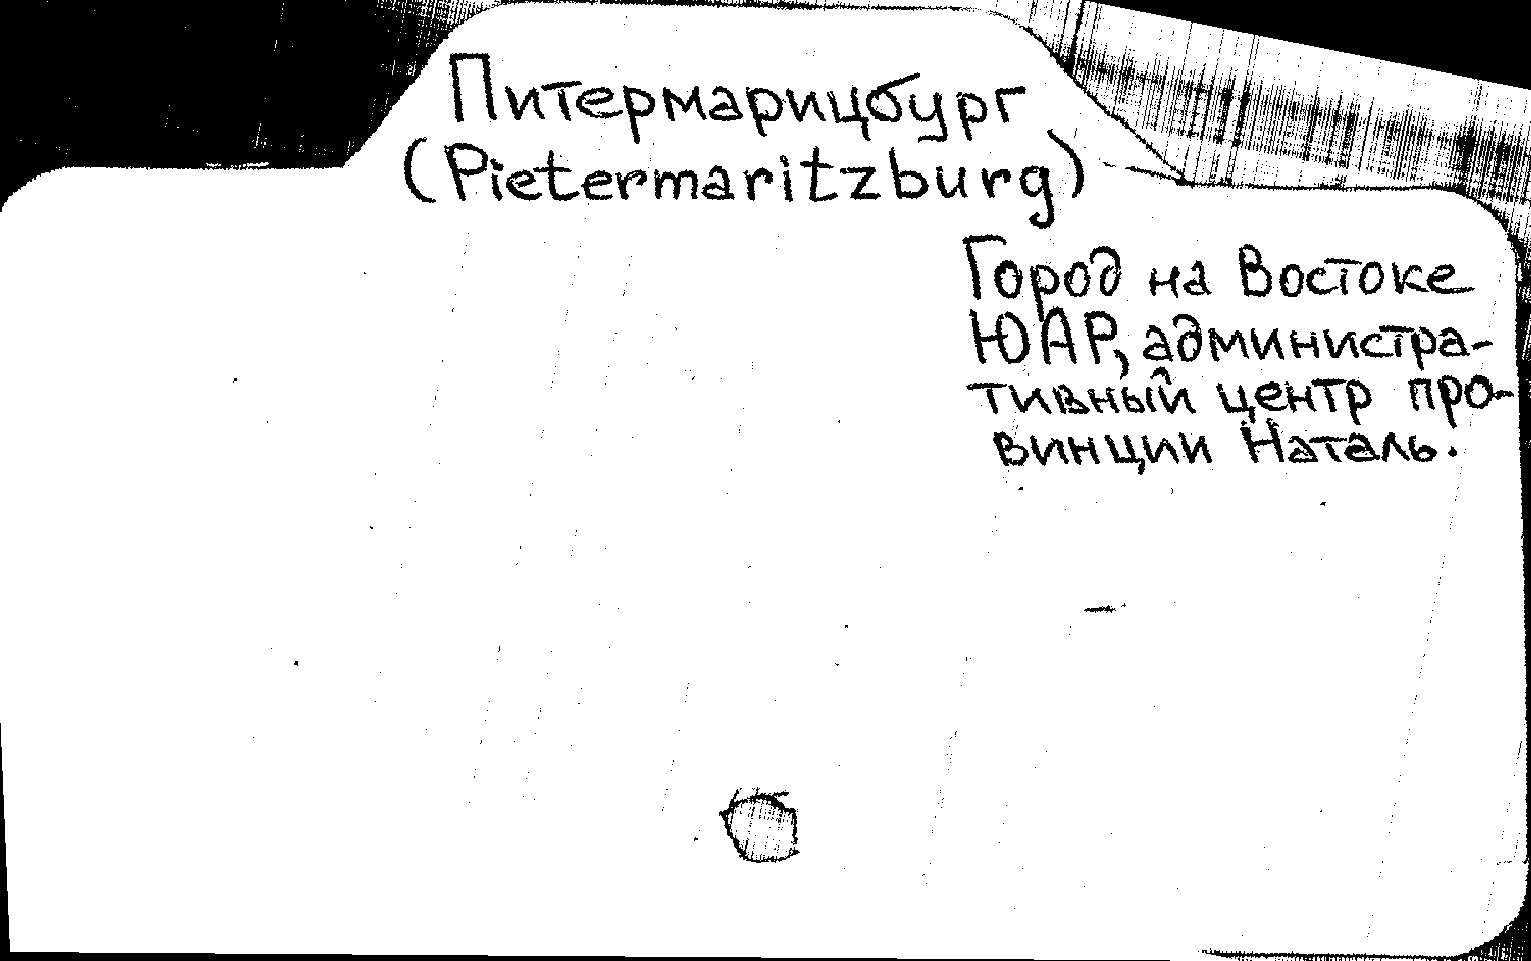 Питермарицбург
(Pietermaritzburg)
Город на Востоке
ЮАР, администра-
тивный центр про-
винции Наталь.